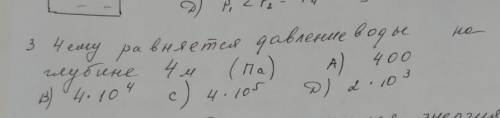 D) P₁ < P₂ =
3 Чему равняется давление воды на
глубине 4м (Па) A) 400
B) 4·10⁴ C) 4·10⁵ D) 2·10³